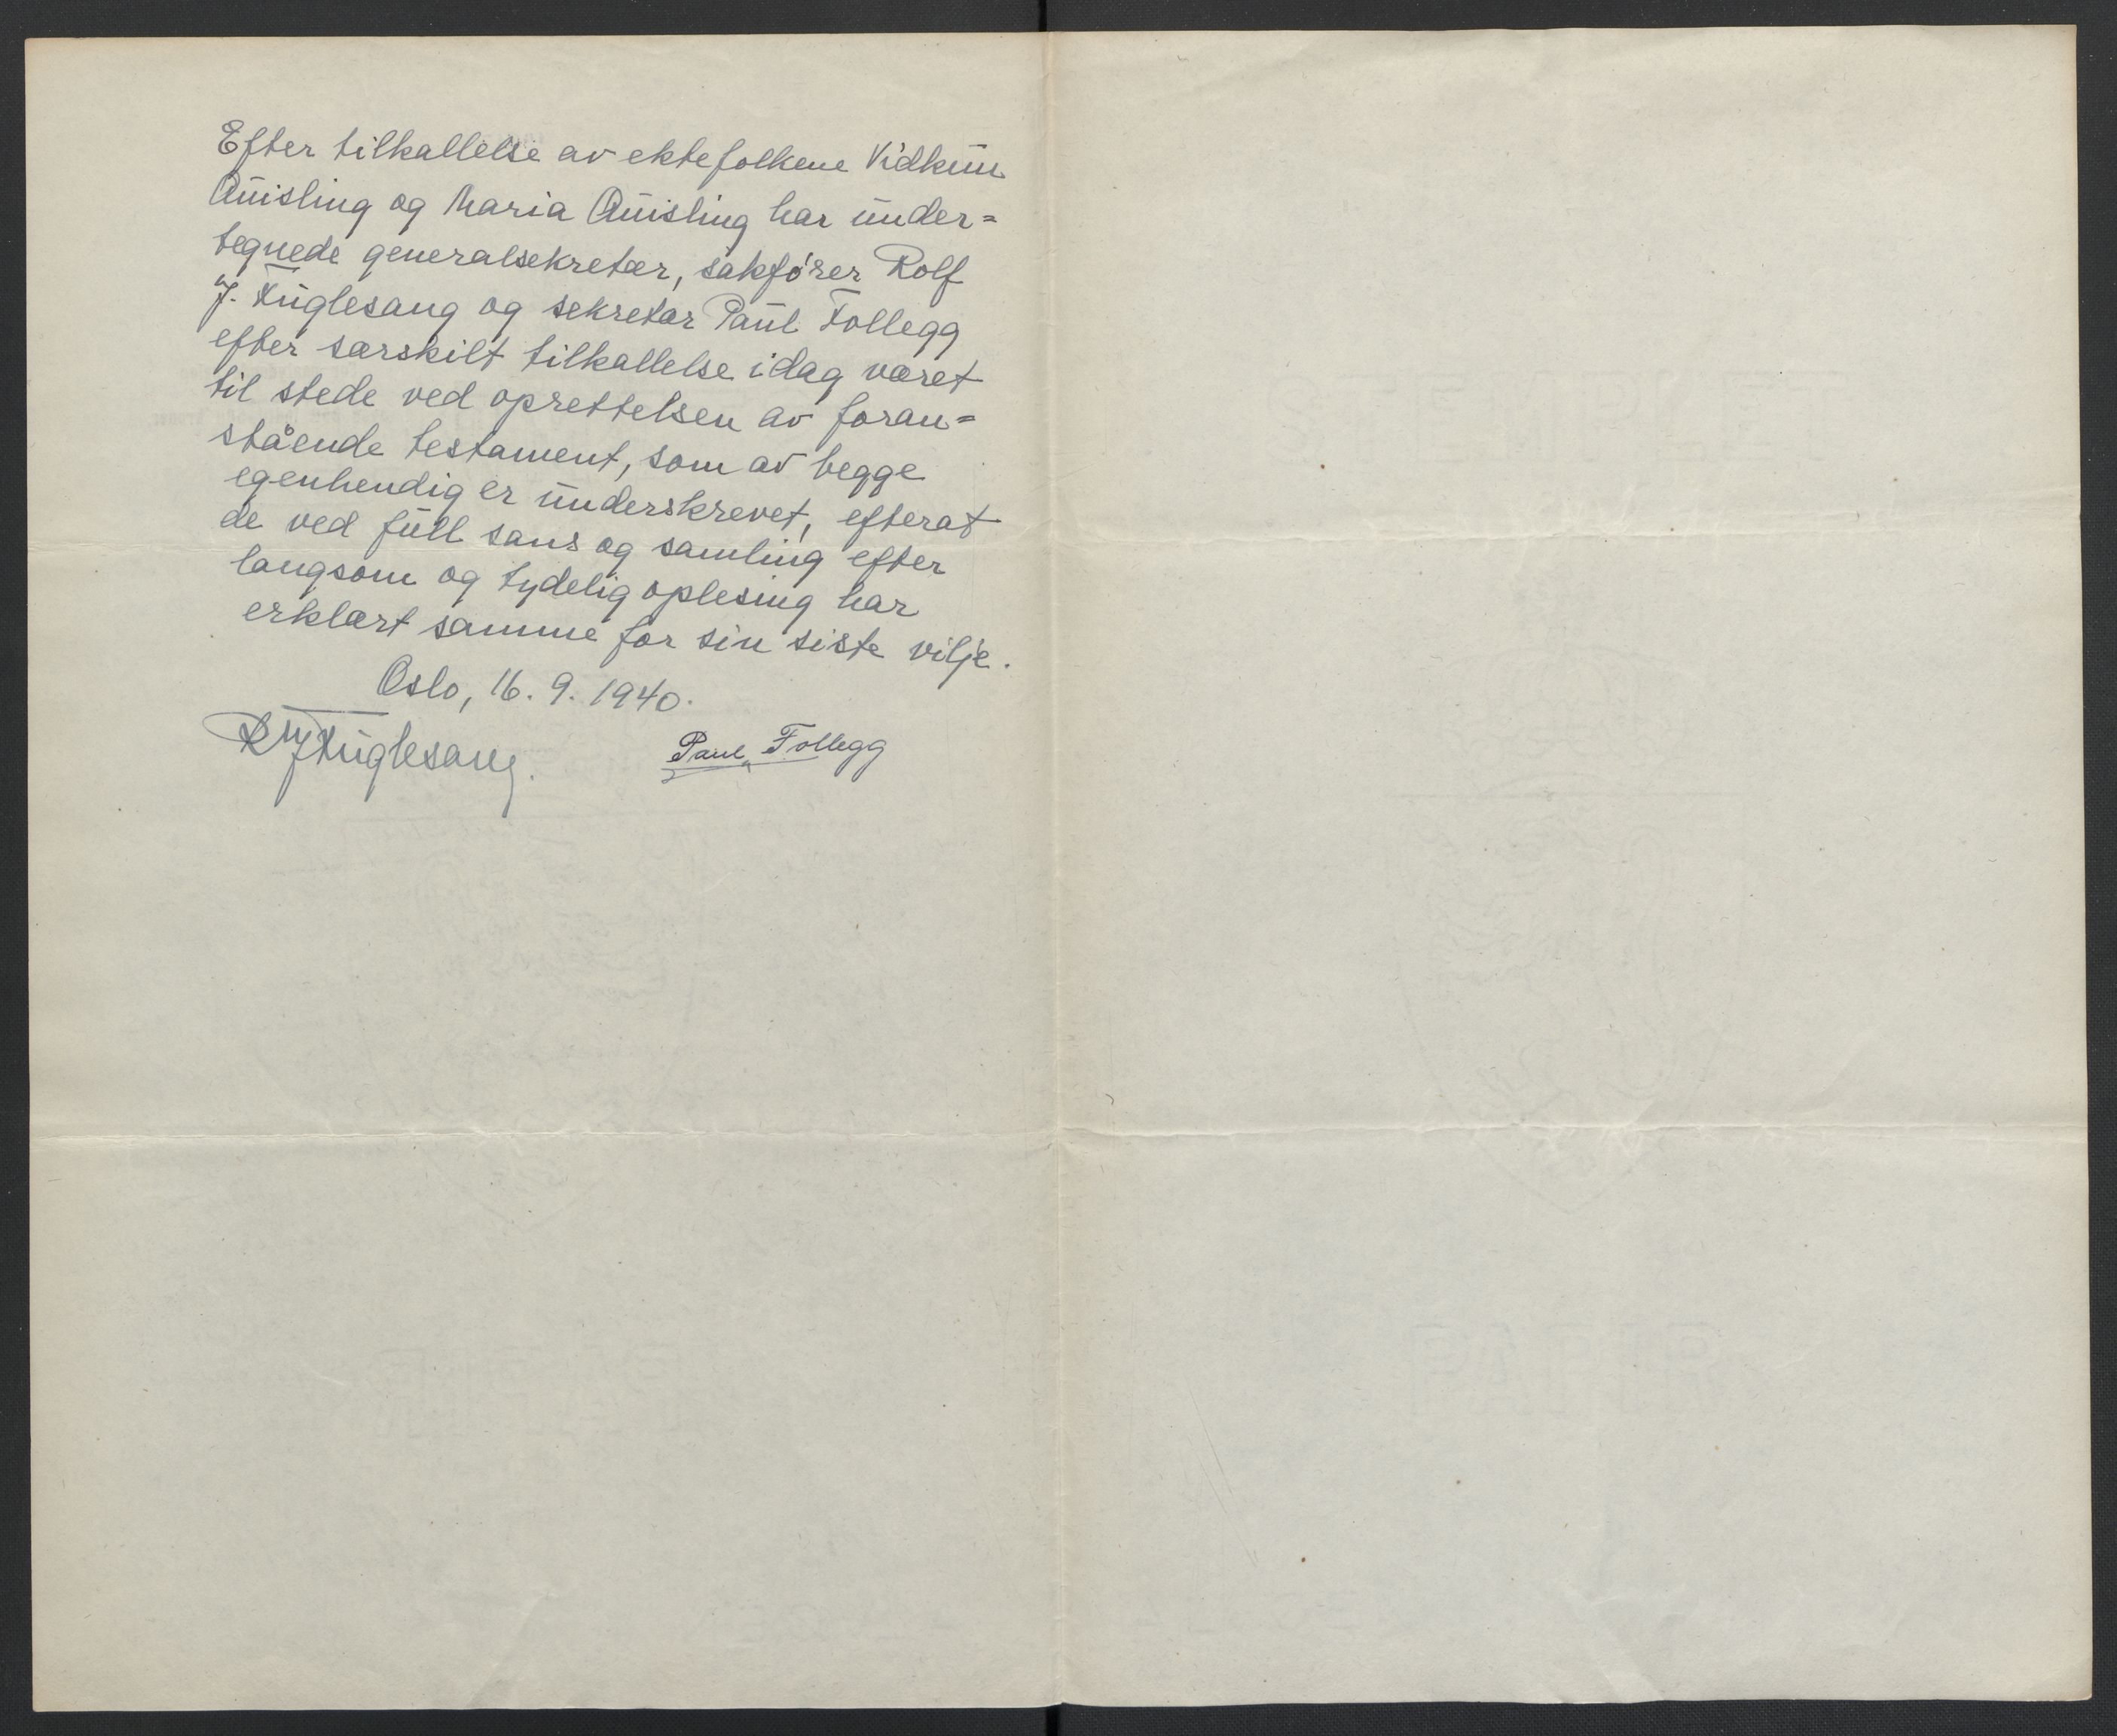 Efter tilkallelse av ektefolkene Vidkun
Quisling og Maria Quisling har under=
tegnede generalsekretær, sakfører Rolf
J. Fuglesang og sekretær Paul Follegg
efter særskilt tilkallelse idag været
til stede ved oprettelsen av foran=
stående testament, som av begge
egenhendig er underskrevet, efterat
de ved full sans og samling efter
langsom og tydelig oplesing har
erklært samme for sin siste vilje.
Oslo, 16. 9. 1940.
R J Fuglesang.
Paul Follegg